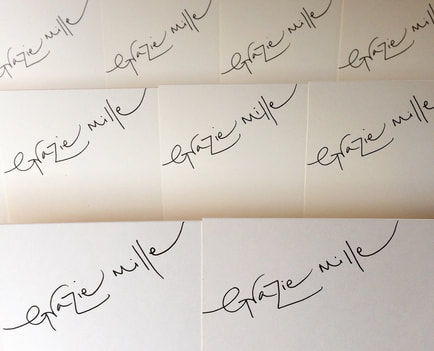 Grazie Mille
Grazie Mille
Grazie Mille
Grazie Mille
Grazie Mille
Grazie Mille
Grazie Mille
Grazie Mille
Grazie Mille